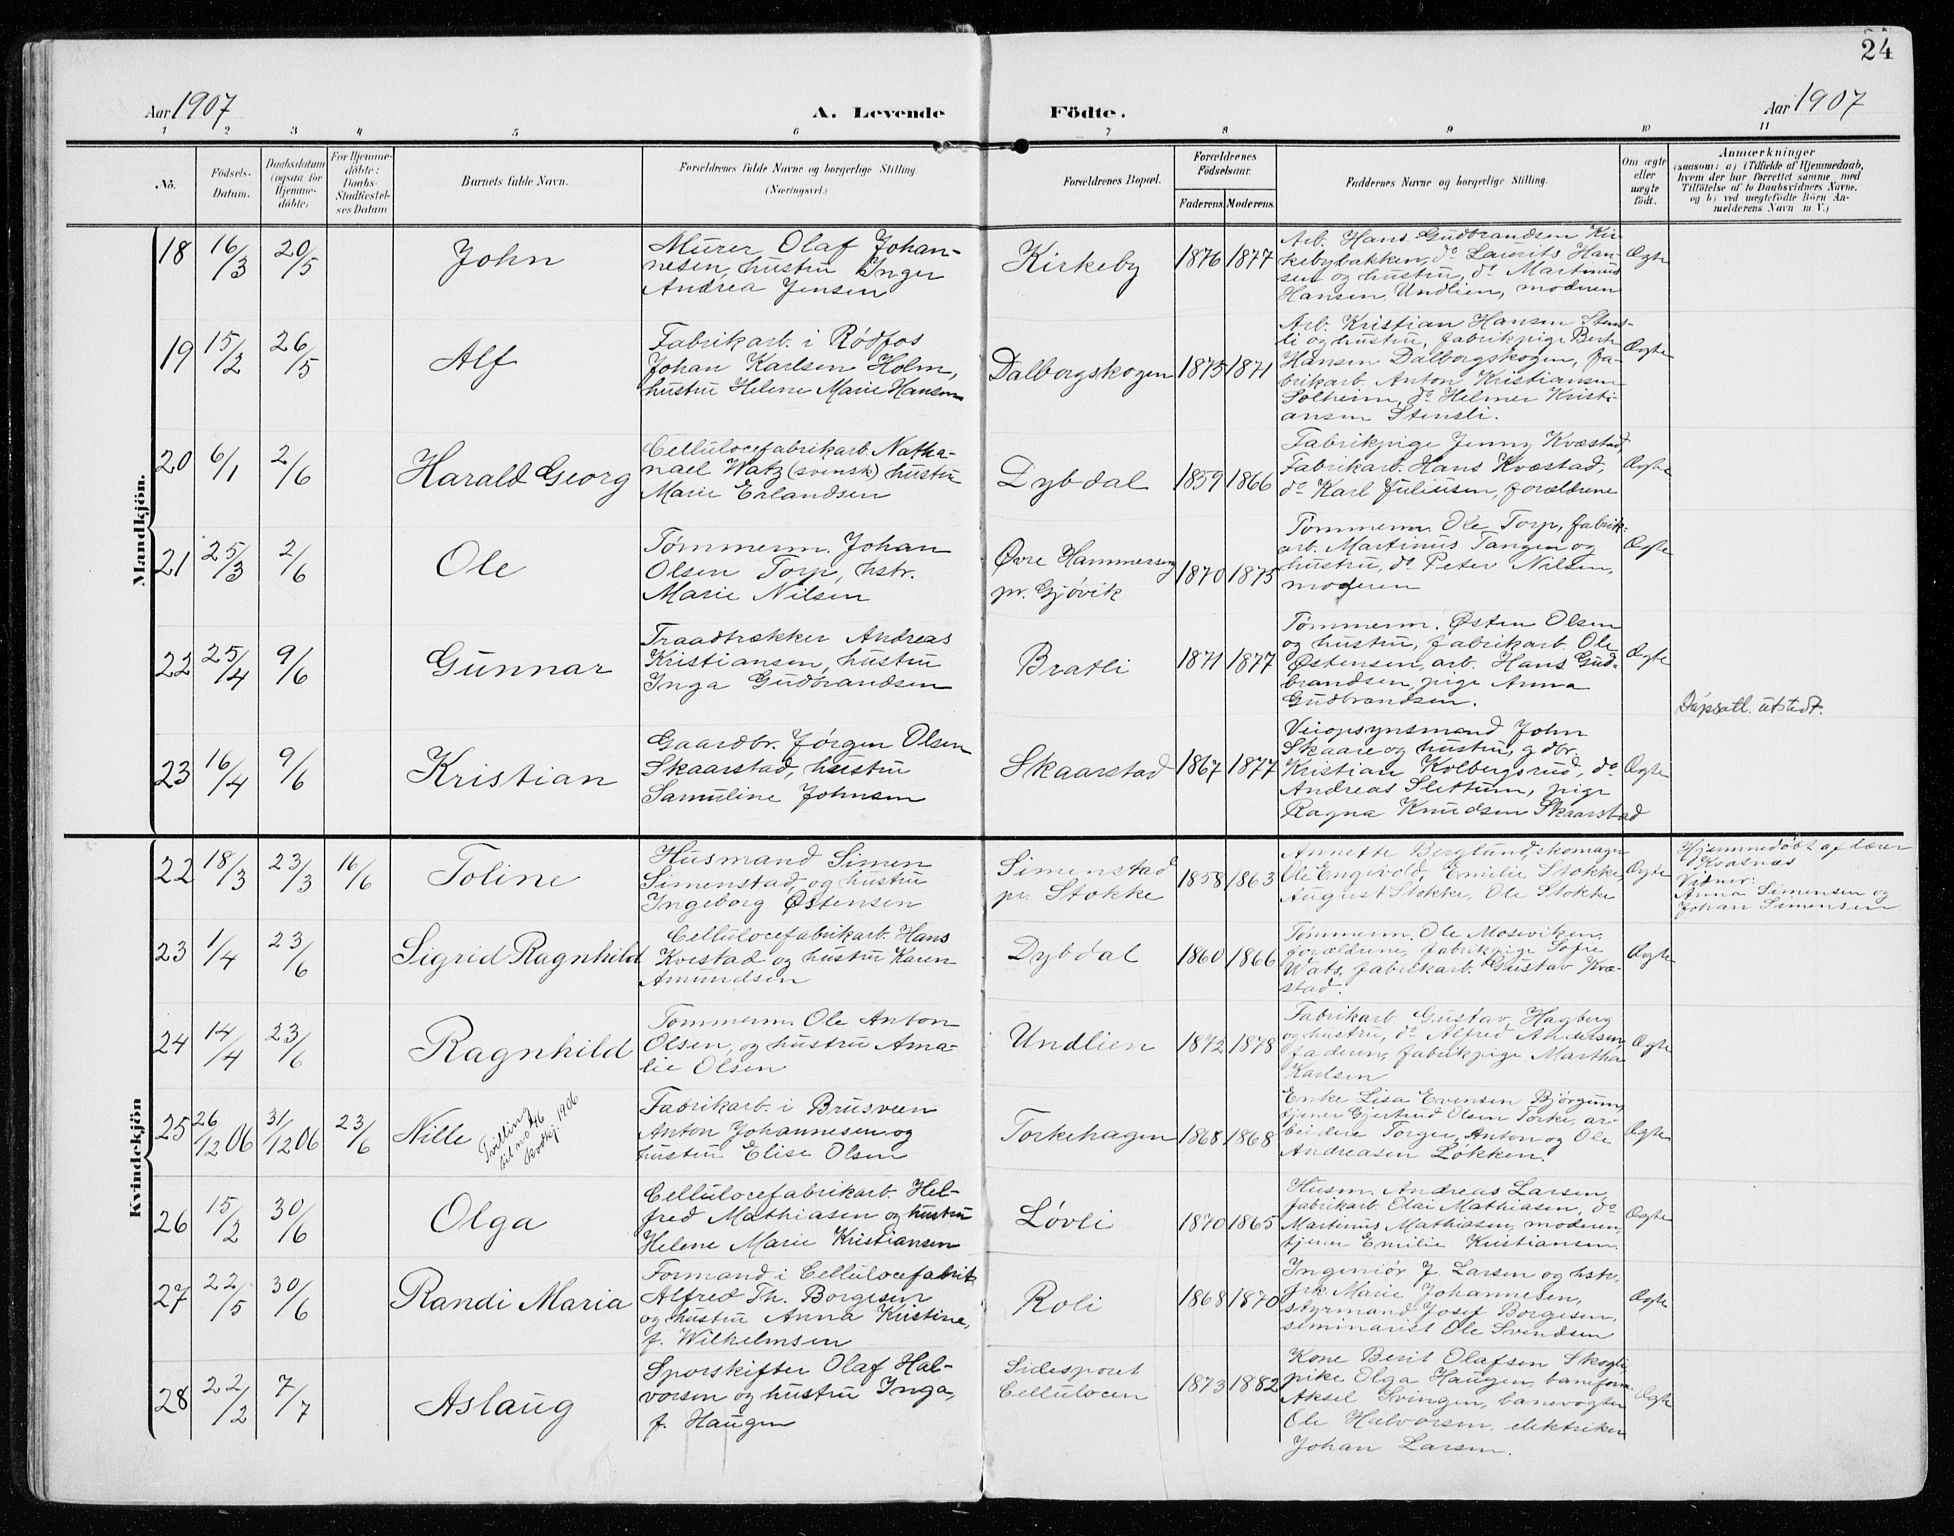 24
Aar 1907
A. Levende Födte.
Aar 1907
1 2 3 4 5 6 7 8 9 10 11
No.
Födsels-
Datum.
Daabsdatum
(ogsaa for
Hjemme-
döbte)
For Hjemme-
döbte:
Daabs-
Stadfæstel-
ses Datum
Barnets fulde Navn.
Forældrenes fulde Navne og borgerlige Stilling.
(Næringsvei.)
Forældrenes Bopæl.
Forældrenes
Födselsaar.
Faderens. Moderens.
Faddernes Navne og borgerlige Stilling.
Om ægte
eller
uægte
födt.
Anmærkninger
(saasom: a) i Tilfælde af Hjemmedaab,
hvem der har forrettet samme, med
Tilföielse af to Daabsvidners Navne,
og b) ved uægtefödte Börn An-
melderens Navn m. V.)
Mandkjön.
18 16/3 20/5
John
Murer Olaf Johan-
nesen, hustru Inger
Andrea Jensen
Kirkeby
1876 1877
Arb. Hans Gudbrandsen Kir-
kebybakken, do Laurits Han-
sen og hustru, do Martinus
Hansen Undlien, moderen
Ægte
19 15/2 26/5
Alf
Fabrikarb. i Rødfos
Johan Karlsen Holm,
hustru Helene Marie Hansen
Dalborgskogen
1875 1871
Arb. Kristian Hansen Stens-
li og hustru, fabrikpige Berte
Hansen Dalborgskogen, fa-
brikarb. Anton Kristiansen
Solheim, do Helmer Kristi-
ansen Stensli.
Ægte
20 6/1 2/6
Harald Georg
Cellulocefabrikarb. Natha-
nael Watz (svensk) hustru
Marie Erlandsen
Dybdal
1859 1866
Fabrikpige Jenny Kvæstad,
Fabrikarb. Hans Kvæstad,
do Karl Juliusen, forældrene
Ægte
21 25/3 2/6
Ole
Tømmerm. Johan
Olsen Torp, hstr.
Marie Nilsen
Øvre Hammerseng
pr. Gjøvik
1870 1875
Tømmerm. Ole Torp, fabrik-
arb. Martinus Tangen og
hustru, do Peter Nilsen,
moderen
Ægte
22 25/4 9/6
Gunnar
Traadtrækker Andreas
Kristiansen, hustru
Inga Gudbrandsen
Bratli
1871 1877
Tømmerm. Østen Olsen
og hustru, fabrikarb. Ole
Østensen, arb. Hans Gud-
brandsen, pige Anna
Gudbrandsen.
Ægte
Dåpsatt. utstedt.
23 16/4 9/6
Kristian
Gaardbr. Jørgen Olsen
Skaarstad, hustru
Samuline Johnsen
Skaarstad
1867 1877
Veiopsynsmand John
Skaare og hustru, gdbr.
Kristian Kolbergsrud, do
Andreas Slettum, pige
Ragna Knudsen Skaarstad
Ægte
Kvindekjön
22 18/3 23/3 16/6
Toline
Husmand Simen
Simenstad, og hustru
Ingeborg Østensen
Simenstad
pr. Stokke
1858 1863
Annette Berglund, skomager
Ole Engevold, Emilie Stokke,
August Stokke, Ole Stokke
Ægte
Hjemmedøbt af lærer
Kvasnæs
Vidner:
Anna Simensen og
Johan Simensen
23 1/4 23/6
Sigrid Ragnhild
Cellulocefabrikarb. Hans
Kvestad og hustru Karen
Amundsen
Dybdal
1860 1866
Tømmerm. Ole Moseviken,
forældrene, fabrikpige Sofie
Wats, fabrikarb. Gustav Kvæ-
stad.
Ægte
24 14/4 23/6
Ragnhild
Tømmerm. Ole Anton
Olsen, og hustru Ama-
lie Olsen
Undlien
1872 1878
Fabrikarb. Gustav Hagberg
og hustru, do Alfred Andersen,
faderen, fabrikpige Martha
Karlsen
Ægte
25 26/12 06 31/12 06 23/6
Nille
Tvilling
til no 46
kvdkj. 1906
Fabrikarb. i Brusveen
Anton Johannesen og
hustru Elise Olsen
Torkehagen
1868 1868
Enke Lisa Evensen Bjørgum,
tjener Gjertrud Olsen Torke, ar-
beidere Torger, Anton og Ole
Andreasen Løkken.
Ægte
26 15/2 30/6
Olga
Cellulocefabrikarb. Hel-
fred Mathiasen og hustru
Helene Marie Kristiansen
Løvli
1870 1865
Husm. Andreas Larsen,
fabrikarb. Olai Mathiasen, do
Martinus Mathiasen, moderen,
tjener Emilie Kristiansen.
Ægte
27 22/5 30/6
Randi Maria
Formand i Cellulocefabrik
Alfred Th. Borgesen
og hustru Anna Kristine,
f. Wilhelmsen
Roli
1868 1870
Ingeniør J. Larsen og hstr.,
frk. Marie Johannesen,
styrmand Josef Borgesen,
seminarist Ole Svendsen
Ægte
28 22/2 7/7
Aslaug
Sporskifter Olaf Hal-
vorsen og hustru Inga,
f. Haugen
Sidesporet
Cellulocen
1873 1882
Kone Berit Olafsen Skogli
pike Olga Haugen, baneform.
Aksel Svingen, banevogter
Ole Halvorsen, elektriker
Johan Larsen.
Ægte